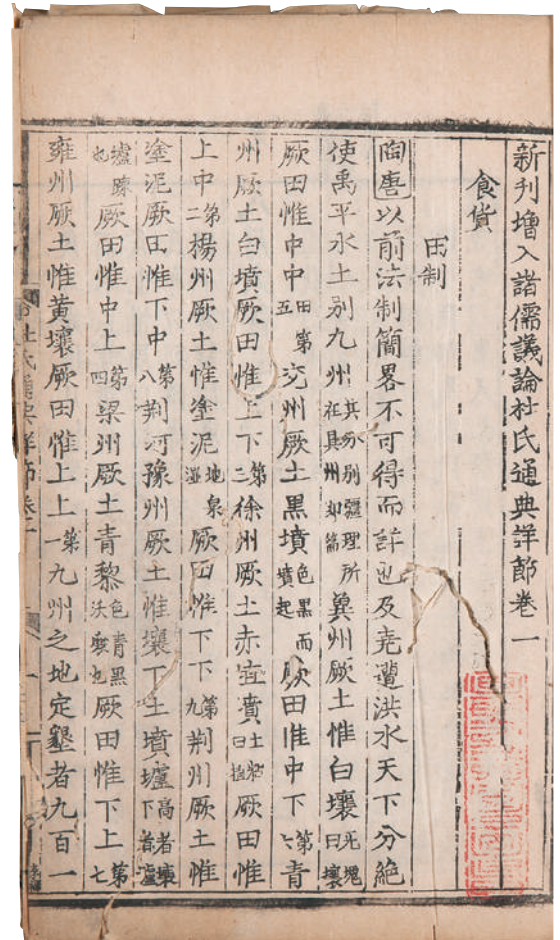 新刊增入諸儒議論杜氏通典詳節卷一
食貨
田制
陶唐以前法制簡畧不可得而詳也及堯遭洪水天下分絶
使禹平水土别九州其分别疆理所在具州郡篇冀州厥土惟白壤无塊曰壤
厥田惟中中田第五兖州厥土黑墳色黑而墳起厥田惟中下第六青
州厥土白墳厥田惟上下第三徐州厥土赤埴墳土黏曰埴厥田惟
上中第二楊州厥土惟塗泥地泉濕厥田惟下下第九荆州厥土惟
塗泥厥田惟下中第八荆河豫州厥土惟壤下土墳壚高者壤下者壚
壚疎也厥田惟中上第四梁州厥土青黎色青黑沃壤也厥田惟下上第七
雍州厥土惟黄壤厥田惟上上第一九州之地定墾者九百一